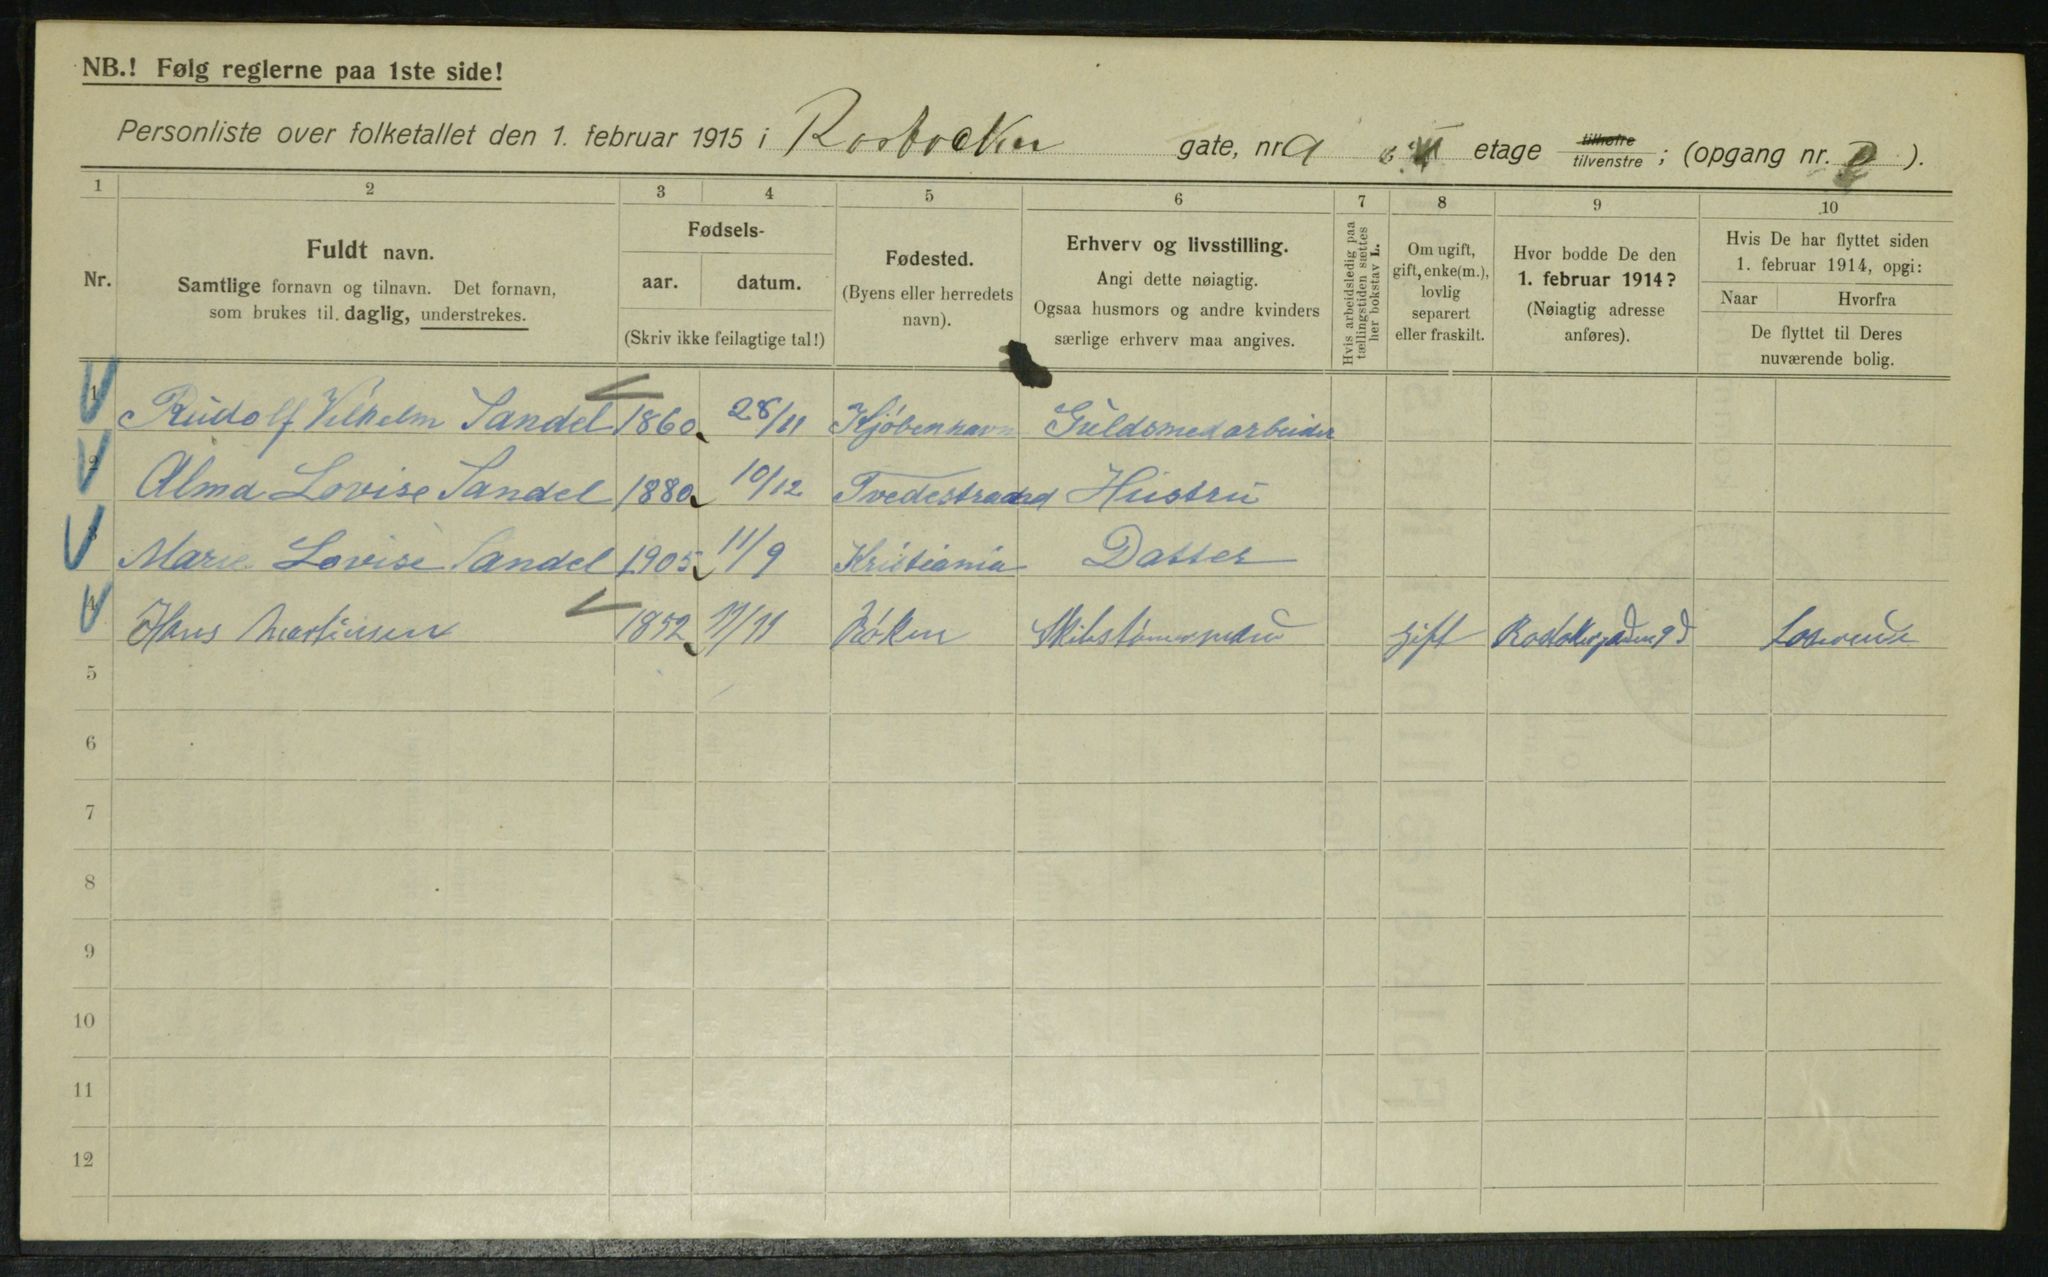 NB.! Følg reglerne paa 1ste side!
Personliste over folketallet den 1. februar 1915 i Rostocker gate, nr. 9 etage tilhøire tilvenstre; (opgang nr. D ).
1 2 3 4 5 6 7 8 9 10
Nr.
Fuldt navn.
Samtlige fornavn og tilnavn. Det fornavn,
som brukes til daglig, understrekes.
Fødsels-
aar. datum.
(Skriv ikke feilagtige tal!)
Fødested.
(Byens eller herredets
navn).
Erhverv og livsstilling.
Angi dette nøiagtig.
Ogsaa husmors og andre kvinders
særlige erhverv maa angives.
Hvis arbeidsledig paa
tællingstiden sættes
her bokstav L.
Om ugift,
gift, enke(m.),
lovlig
separert
eller fraskilt.
Hvor bodde De den
1. februar 1914?
(Nøiagtig adresse
anføres).
Hvis De har flyttet siden
1. februar 1914, opgi:
Naar Hvorfra
De flyttet til Deres
nuværende bolig.
1 Rudolf Vilhelm Sandel 1860 28/11 Kjøbenhavn Guldsmedarbeider
2 Alma Lovise Sandel 1880 10/12 Tvedestrand Hustru
3 Marie Lovise Sandel 1905 11/9 Kristiania Datter
4 Hans Martinsen 1852 Røken gift
5
6
7
8
9
10
11
12